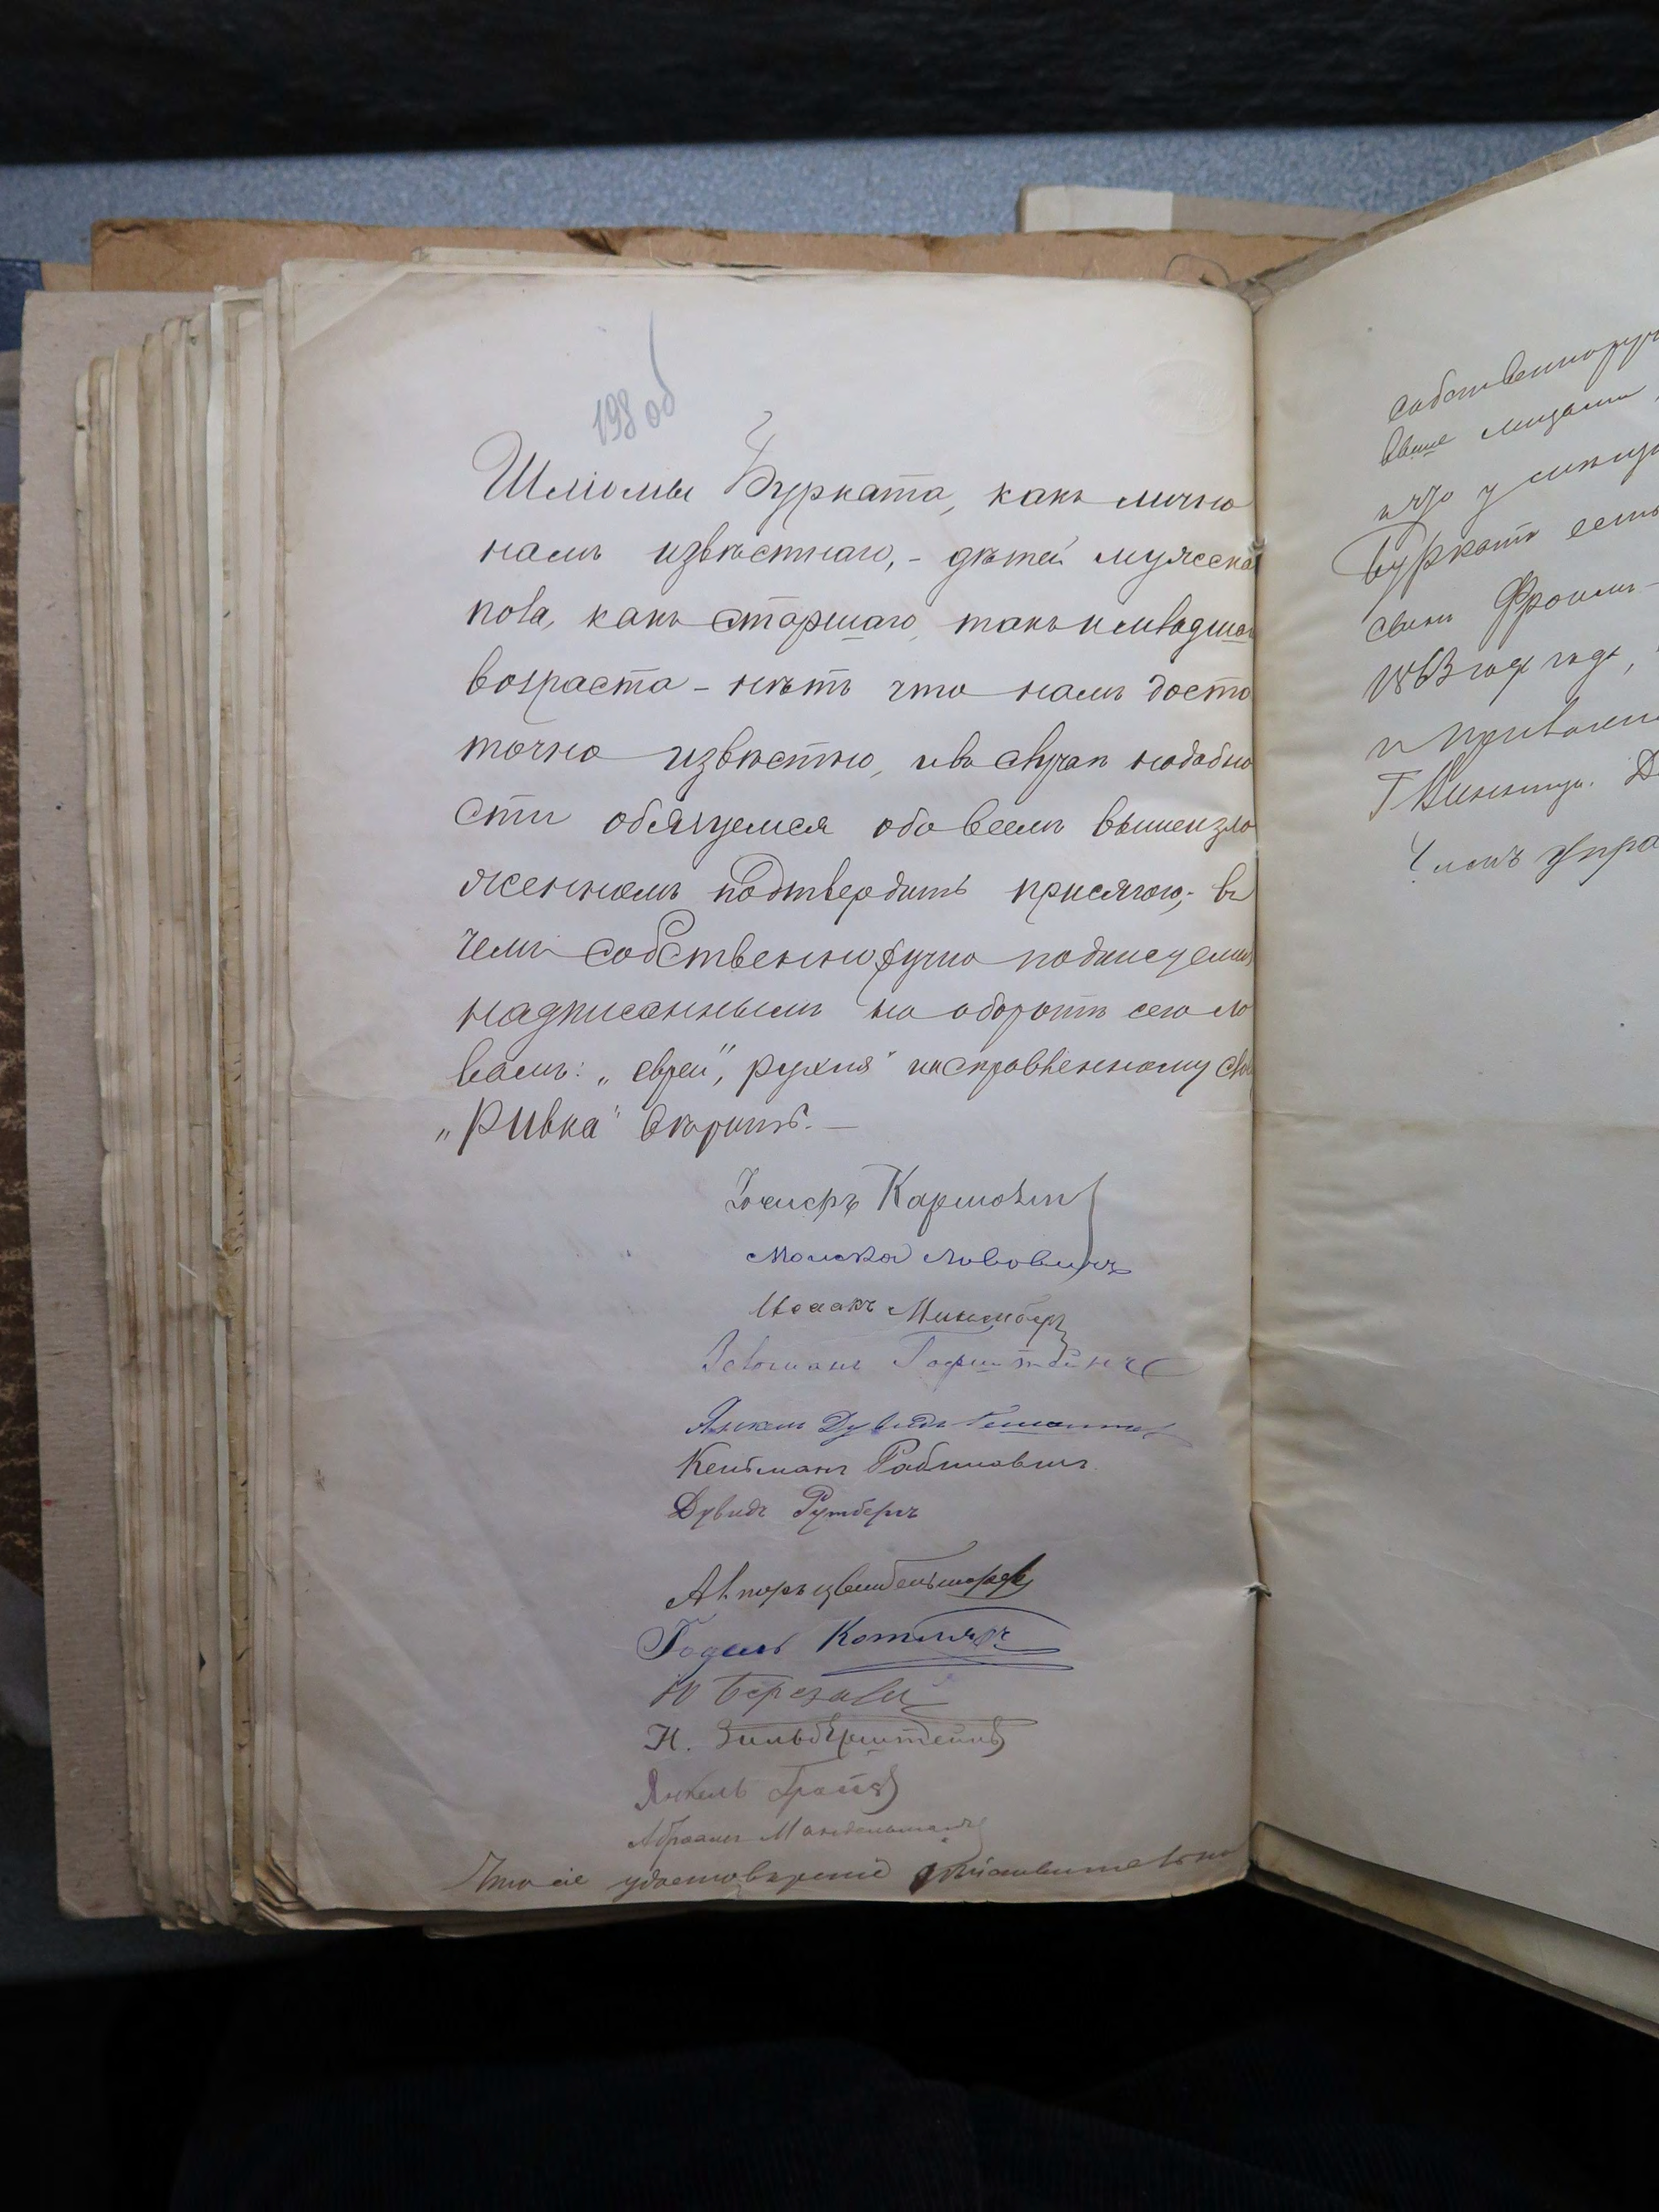 198 об
Шліомы Бурката, какъ лично
намъ извѣстнаго, - дѣтей мужска
пола, какъ старшаго, такъ и младшаг
возраста - нѣтъ что намъ доста
точно извѣстно, и въ случаѣ надобно
сти обязуемся обо всемъ вышеизло
женномъ подтвердить присягою; въ
чемъ собственноручно подписуемся
надписаннымъ на оборотѣ сего сло
вамъ: „еврей", рухля" и исправленному сло
„Ривка" вѣрить. —
Іосифъ
Мошко Лвовичъ
Исаакъ
Зельманъ Гофштейнъ
Янкель Дувидъ
Кельманъ Рабиновичъ
Дувидъ Рутбергъ
Годель Котляръ
Н. Зильберштейнъ
Янкель
Абрамъ Мандельманъ
Что сіе удостовѣреніе дѣйствительно
собственноруч
выше лицами
что у
Буркатъ есть
сынъ Фроимъ-
1863 году
и
Г Винница. Д
Членъ Упра